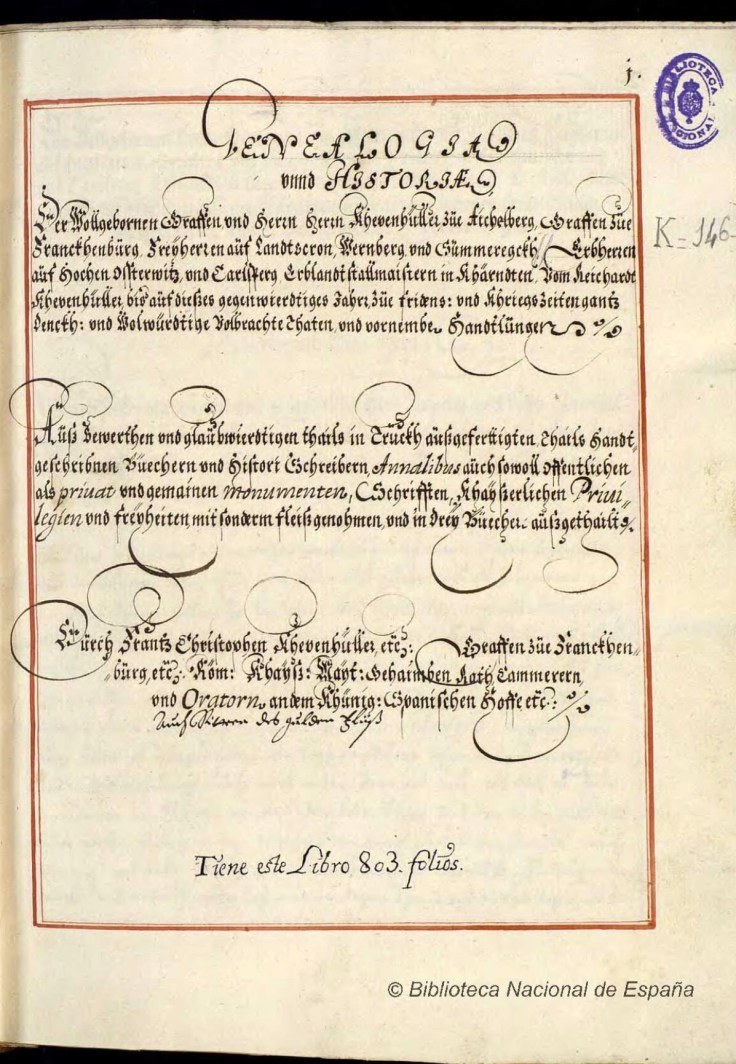 j.
GENEALOGIA
vnnd HISTORIA
Der Wollgebornen Graffen, vnd Herrn Herrn Khevenhüller züe Aichelberg, Graffen züe
Franckhenbürg, Freyherren aüf Landtscron, Wernberg, vnd Sümmeregckh, Erbherren
aüf Hochen Ossterwitz, vnd Carlsperg, Erblandtstallmaistern in Khärndten, Vom Reichardt
Khevenhüller, bis aüf dießes gegenwierdtiges Jahr, züe fridens: vnd Khriegszeiten gantz
denckh: vnd Wolwürdtige Volbrachte Thaten, vnd vornembe Handtlüngen %
Aüß bewerthen vnd glaübwierdtigen thails in Trückh aüßgefertigten Thails Handt„
geschribnen Büechern vnd Histori Schreibern, Annalibus aüch sowoll offentlichen
als priuat vnd gemainen monumenten, Schrifften, Khayßerlichen Priui„
legien vnd freyheiten mit sonderm fleiß genohmen, vnd in drey Büecher aüßgethailt %
Dürch Frantz Christophen Khevenhüller, etc: Graffen züe Franckhen„
„bürg, etc. Röm: Khayß: Mayt: Gehaimben Rath Cammerern,
vnd Oratorn, an dem Khünig: Spanischen Hoffe etc: %
Auch Rittern des gulden Fluß
Tiene este Libro 803. folios.
BIBLIOTECA NACIONAL
K=146
© Biblioteca Nacional de España